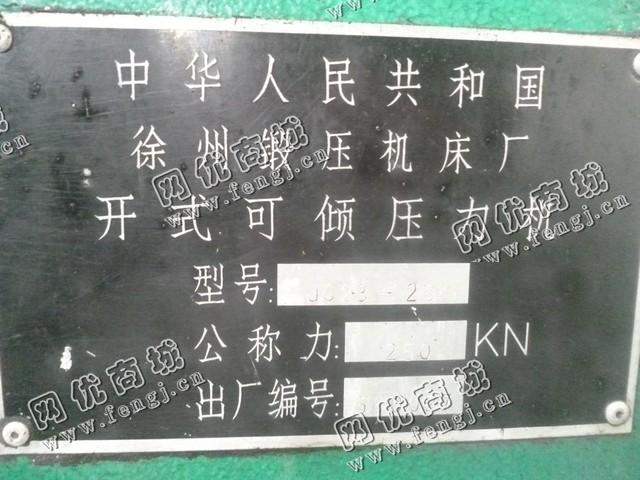 中华人民共和国
徐州锻压机床厂
开式可倾压力机
型号:
公称力: KN
出厂编号:
网优商城
www.fengj.cn
网优商城
www.fengj.cn
网优商城
www.fengj.cn
网优商城
www.fengj.cn